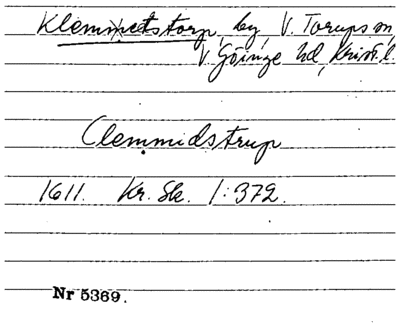 Klemmetstorp, by, V. Torups sn,
V. Göinge hd, Krist. l.
Clemmidstrup
1611. Kr. Sk. 1:372.
Nr 5369.